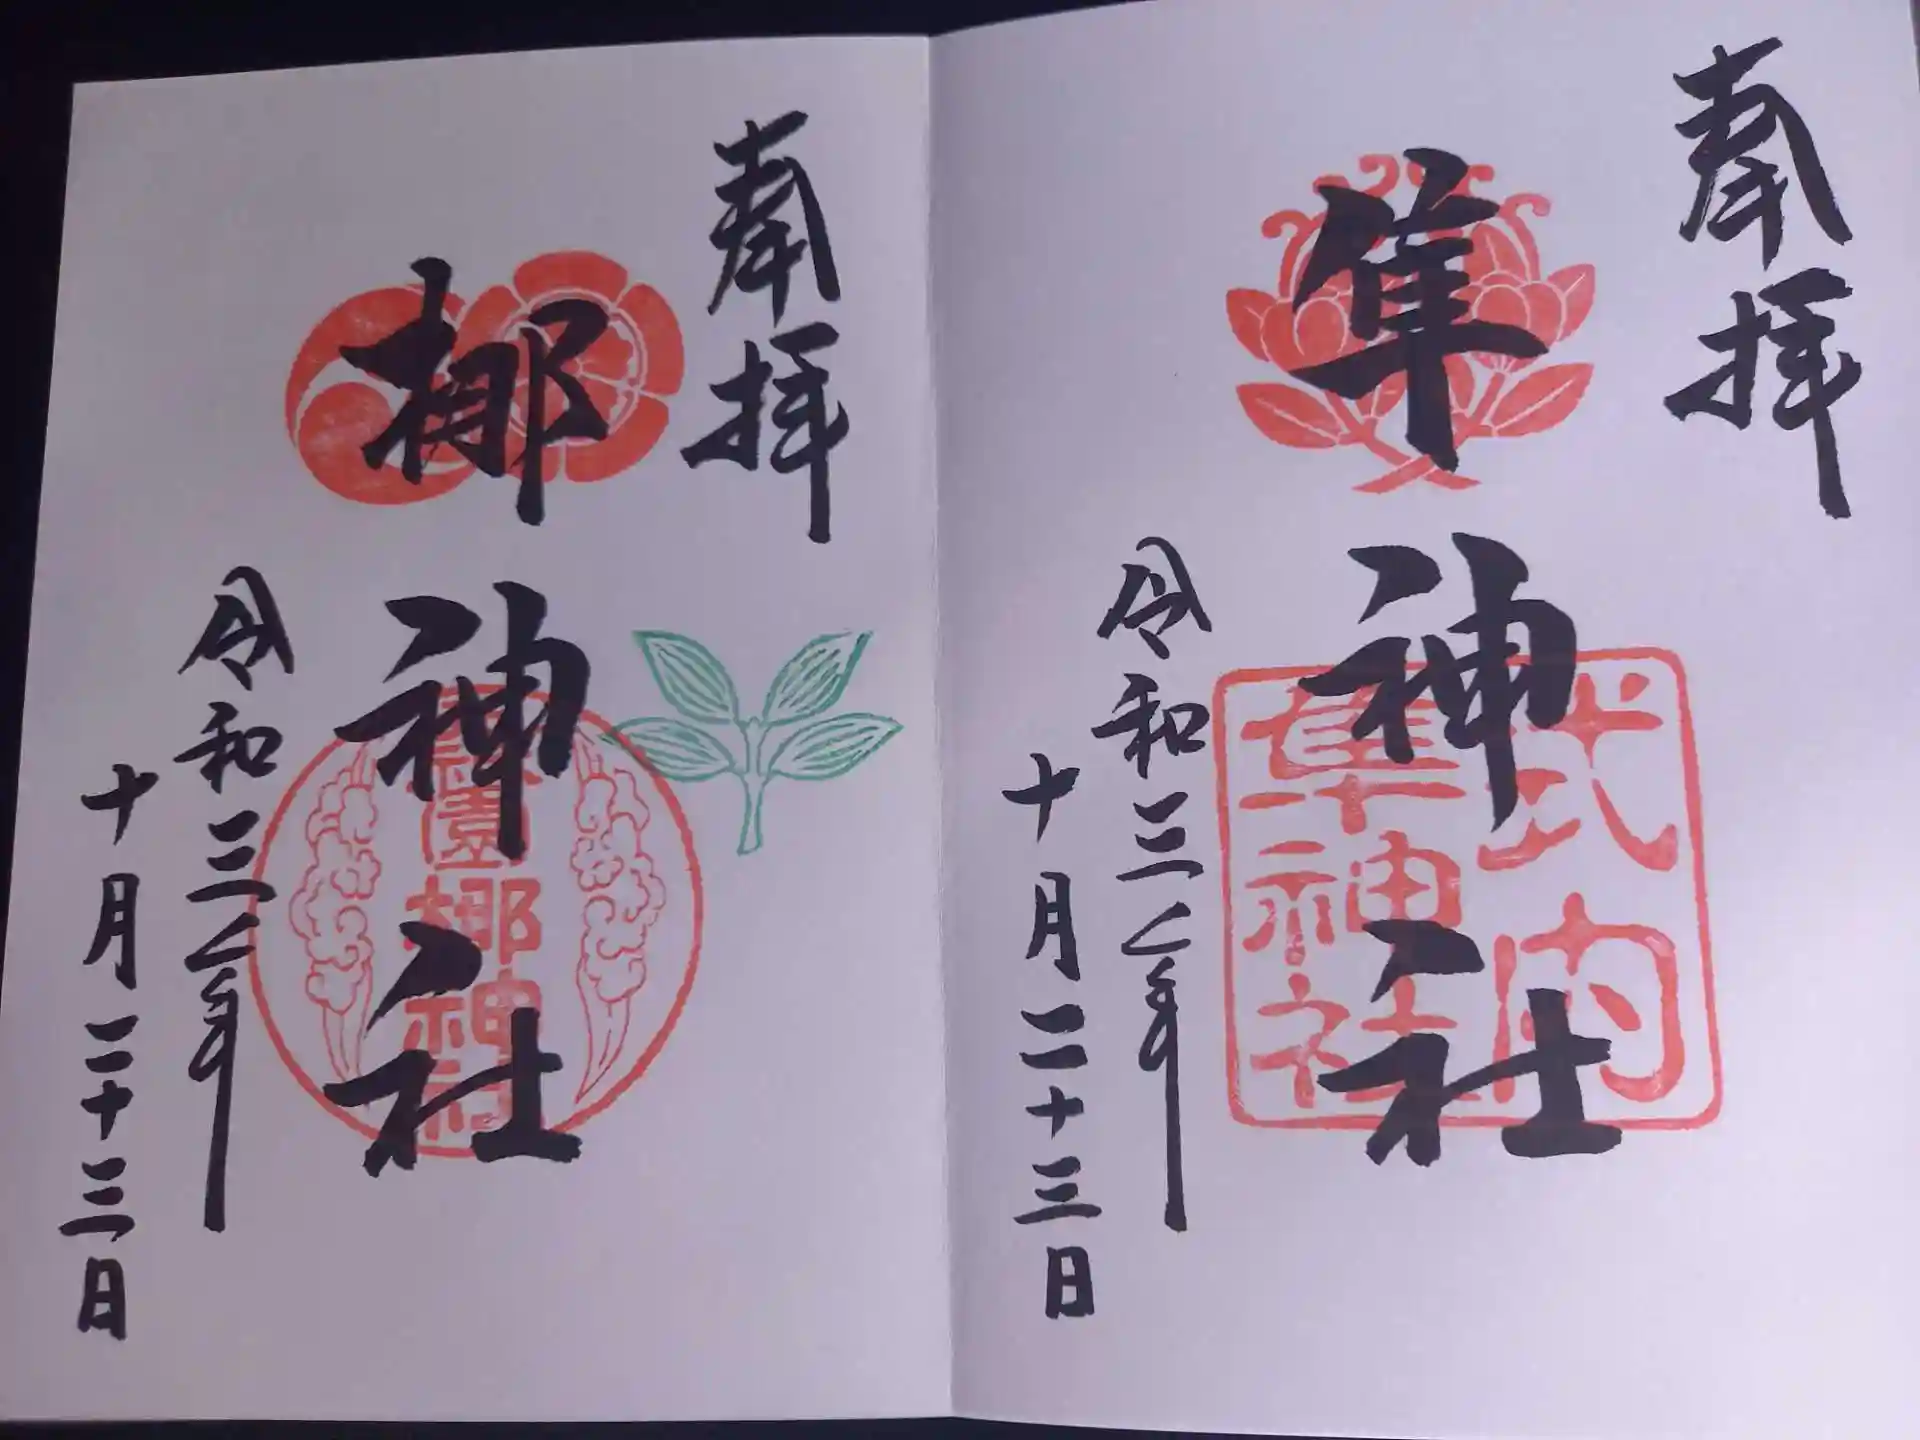 奉拝
隼神社
式内
隼神社
令和三年
十月二十三日
奉拝
梛神社
園梛神社
令和三年
十月二十三日